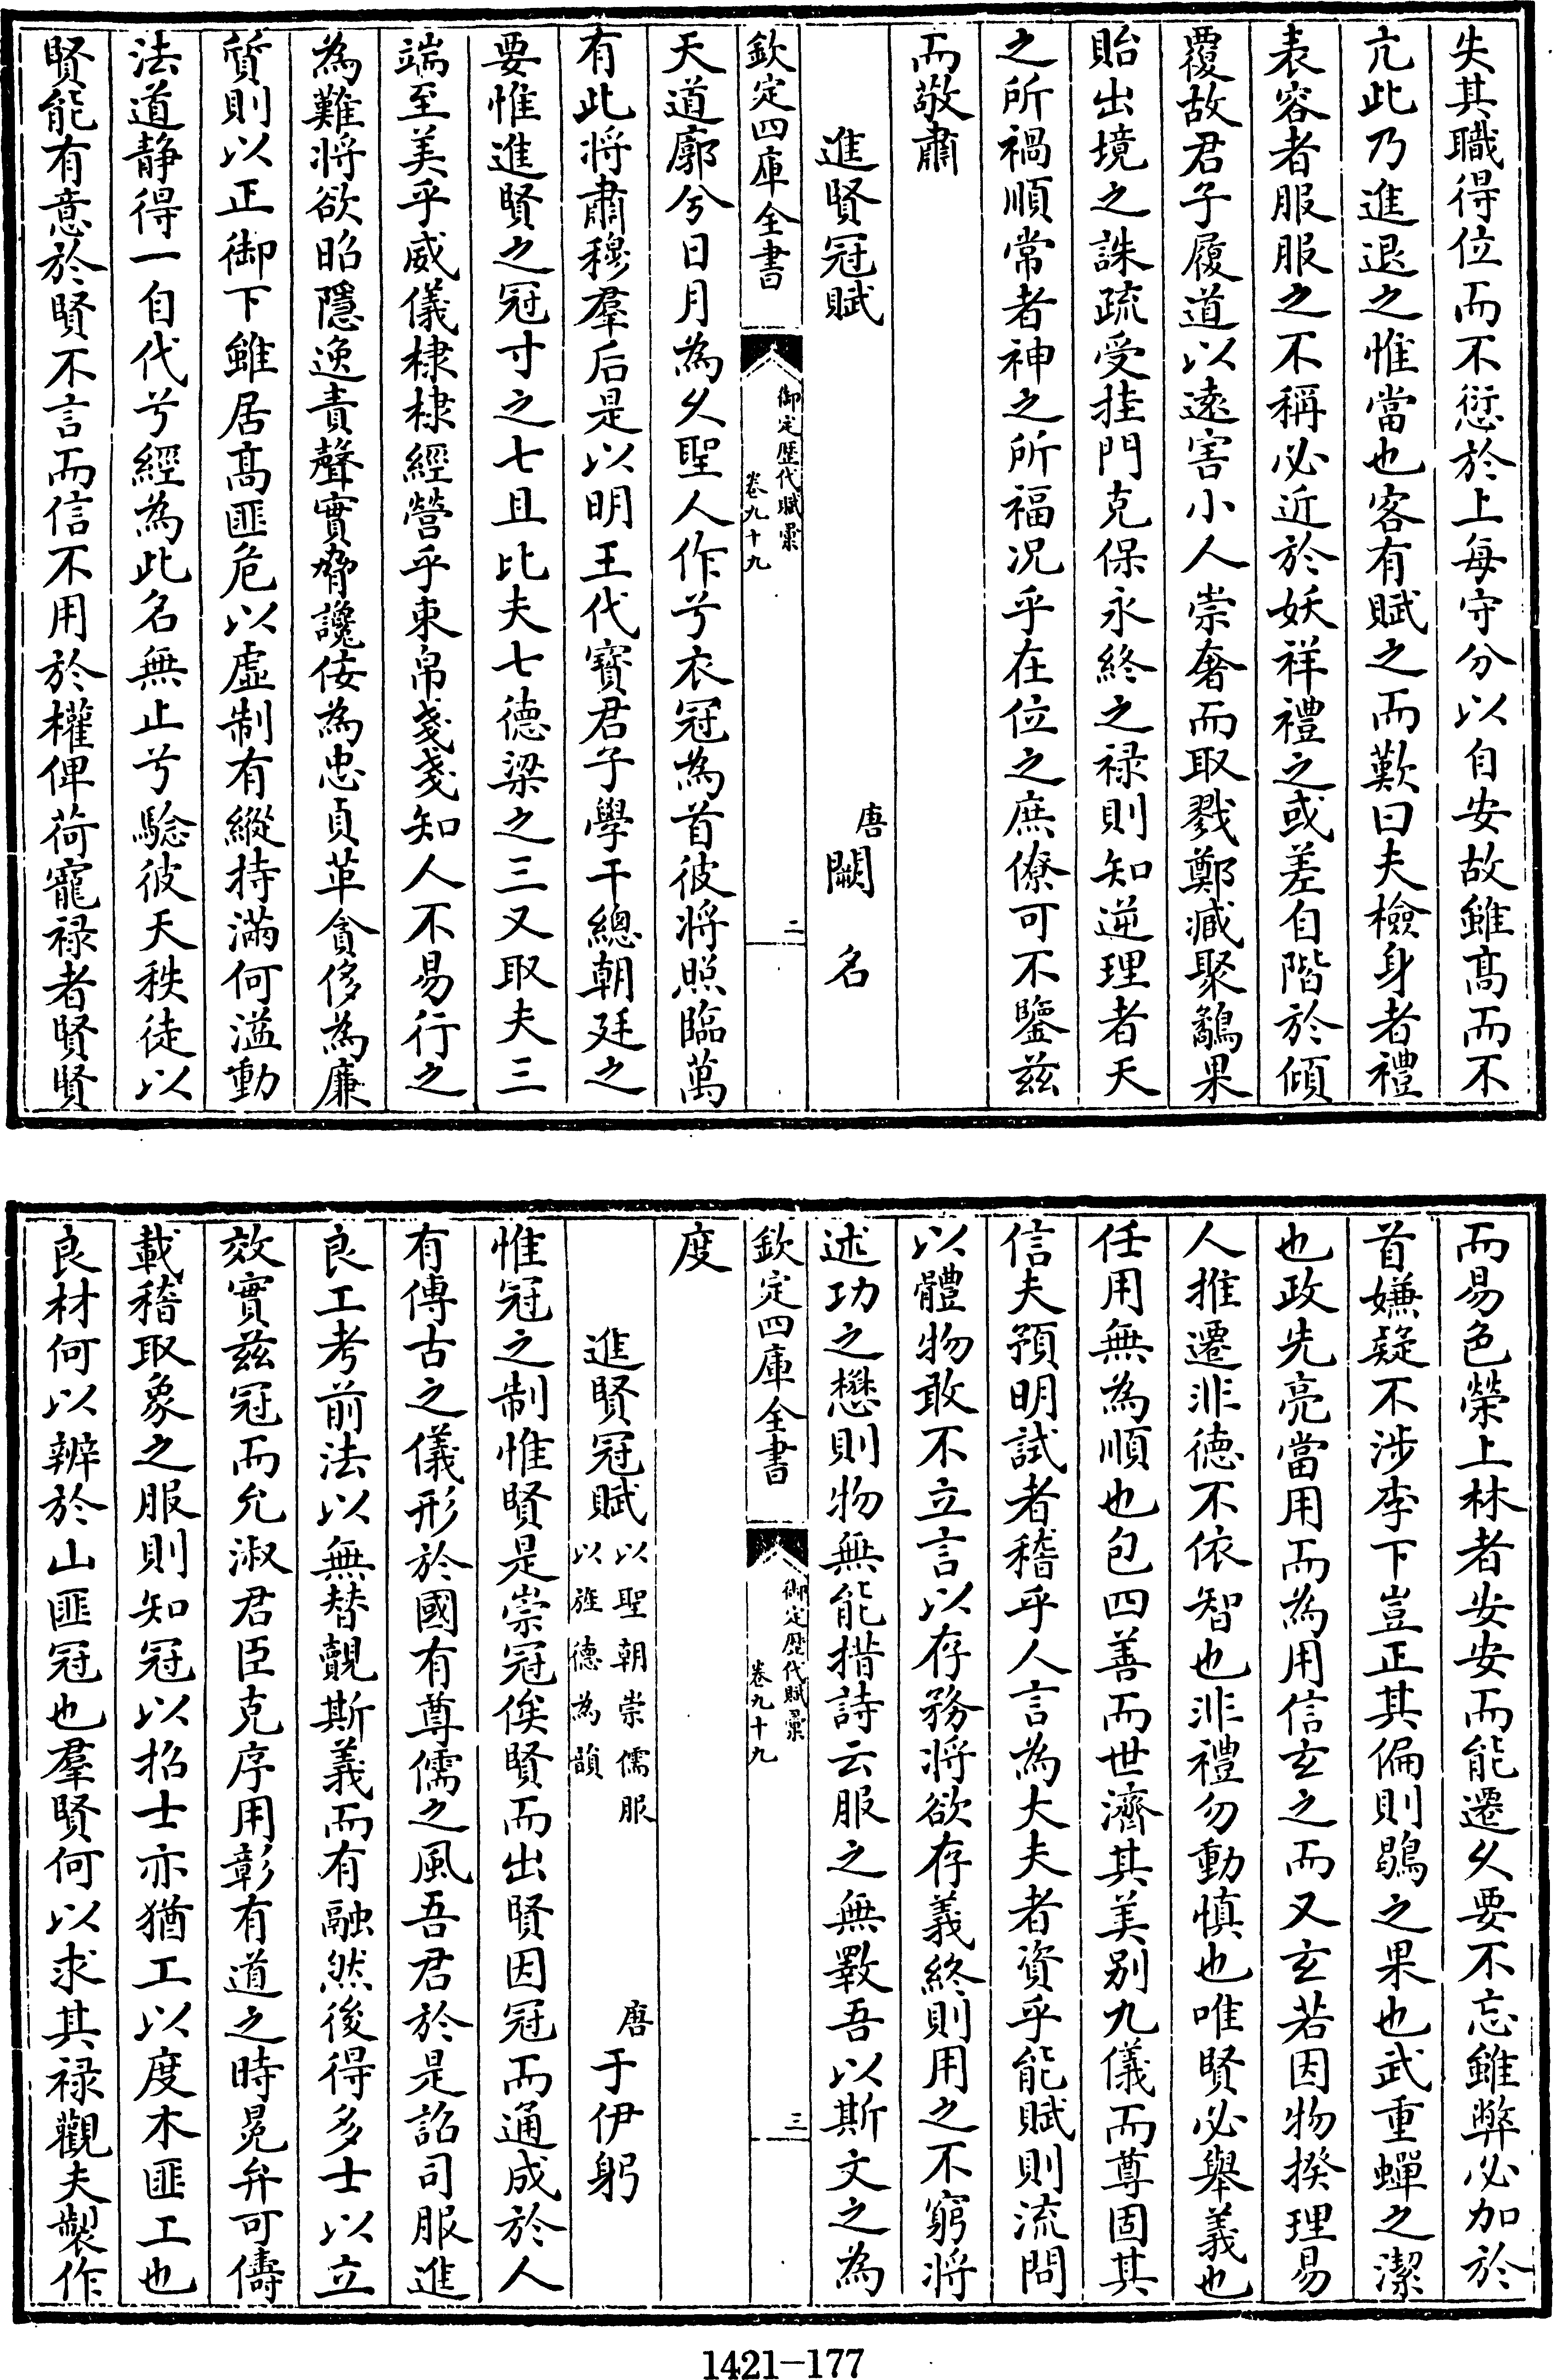 失其職得位而不愆於上每守分以自安故雖髙而不
亢此乃進退之惟當也客有賦之而歎曰夫檢身者禮
表容者服服之不稱必近於妖祥禮之或差自階於傾
覆故君子履道以遠害小人崇奢而取戮鄭臧聚鷸果
貽出境之誅疏受挂門克保永終之禄則知逆理者天
之所禍順常者神之所福况乎在位之庶僚可不鑒兹
而敬肅
進賢冠賦
唐闕名
欽定四庫全書
御定歴代賦彙
卷九十九
二
天道廓兮日月為久聖人作兮衣冠為首彼將照臨萬
有此將肅穆羣后是以明王代寳君子學干總朝廷之
要惟進賢之冠寸之七且比夫七德梁之三又取夫三
端至美乎威儀棣棣經營乎束帛戔戔知人不易行之
為難將欲昭隱逸責聲實脅讒佞為忠貞革貪侈為廉
質則以正御下雖居髙匪危以虛制有縱持滿何溢動
法道静得一自代兮經為此名無止兮驗彼天秩徒以
賢能有意於賢不言而信不用於權俾荷寵禄者賢賢
而易色榮上林者安安而能遷久要不忘雖弊必加於
首嫌疑不涉李下豈正其偏則鶡之果也武重蟬之潔
也政先亮當用而為用信玄之而又玄若因物揆理易
人推遷非德不依智也非禮勿動慎也唯賢必舉義也
任用無為順也包四善而世濟其美别九儀而尊固其
信夫預明試者稽乎人言為大夫者資乎能賦則流問
以體物敢不立言以存務將欲存義終則用之不窮將
述功之懋則物無能措詩云服之無斁吾以斯文之為
欽定四庫全書
御定歴代賦彙
卷九十九
三
度
進賢冠賦以聖朝崇儒服
以旌德為韻
唐于伊躬
惟冠之制惟賢是崇冠俟賢而出賢因冠而通成於人
有傳古之儀形於國有尊儒之風吾君於是詔司服進
良工考前法以無替觀斯義而有融然後得多士以立
效實兹冠而允淑君臣克序用彰有道之時冕弁可儔
載稽取象之服則知冠以招士亦猶工以度木匪工也
良材何以辨於山匪冠也羣賢何以求其禄觀夫製作
1421-177